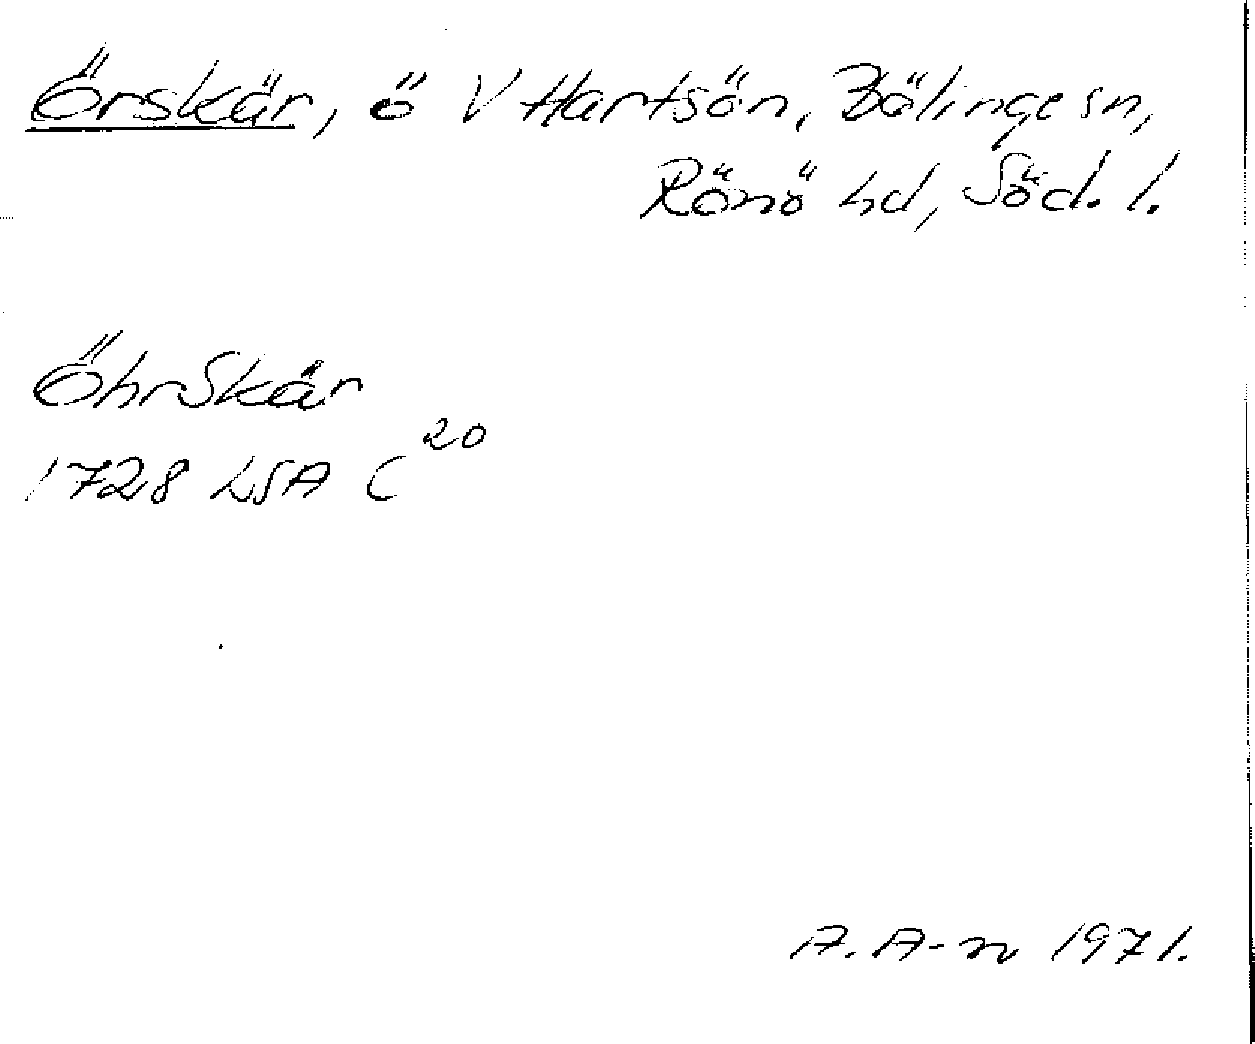 Örskär, ö V Hartsön, Bälinge sn,
Rönö hd, Söd. l.
ÖhrSkär
1728 LSA C²⁰
A. A-n 1971.